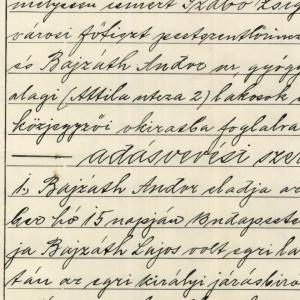 mélyesen ismert Szabó Zsig
városi főtiszt pestszentlőrinc
és Bajzáth Andor ur, gyógy
alagi (Attila utca 2) lakosok,
közjegyzői okiratba foglalva
adásvevési szer
1., Bajzáth Andor eladja az
ber hó 15 napján Budapeste
ja Bajzáth Lajos volt egri la
tán az egri királyi járásbiro